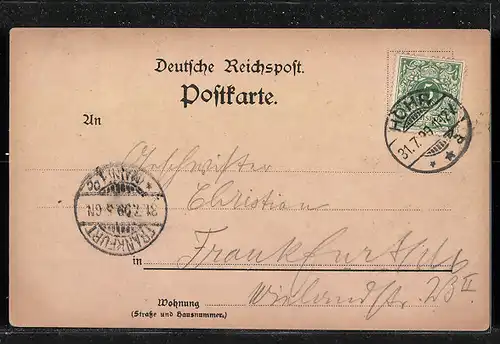 Deutsche Reichspost.
Postkarte.
An
Geschwister
Christian
in Frankfurt
23 II
Wohnung
(Straße und Hausnummer.)
5
HÖHR
31.7.99
FRANKFURT
(MAIN)
31.7.99